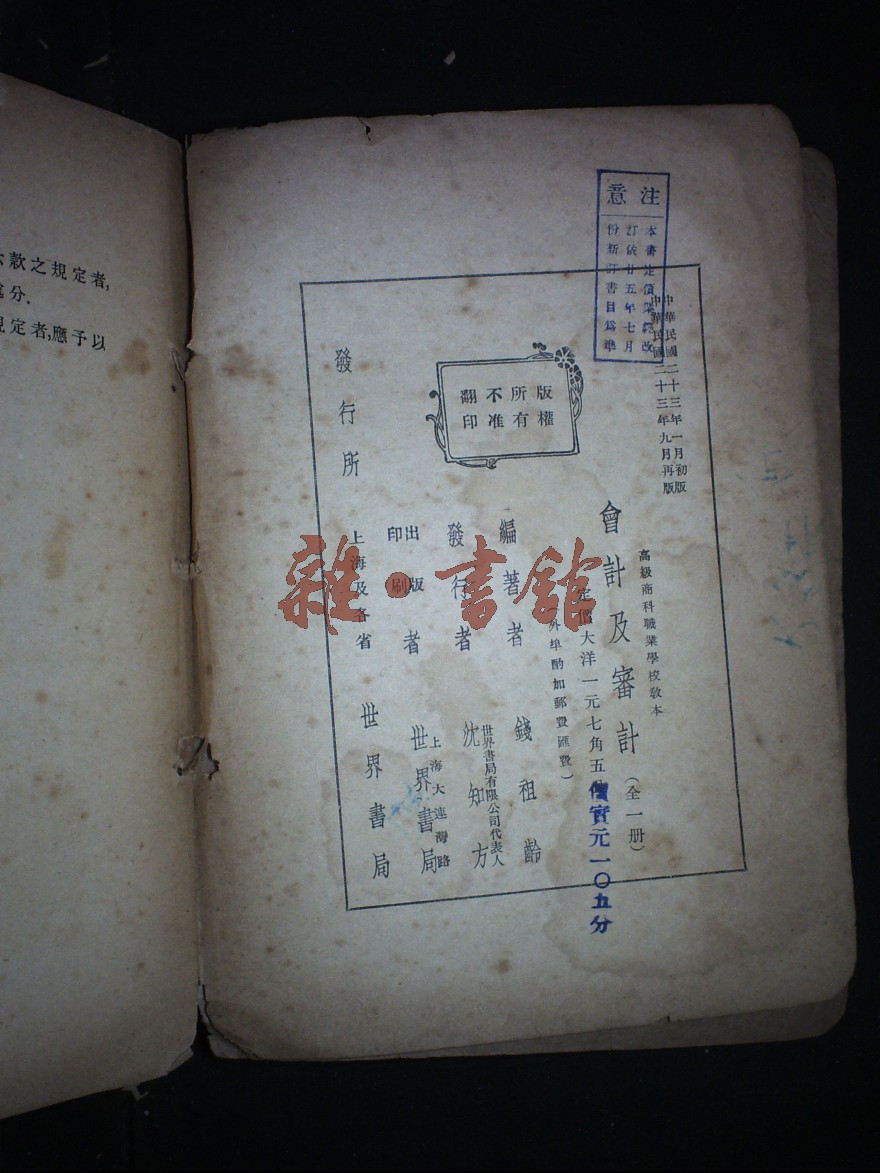 六款之規定者,
處分.
規定者,應予以
注意
本書定價業經改
訂依廿五年七月
份新訂書目爲準
中華民國二十三年一月初版
中華民國二十三年九月再版
高級商科職業學校敎本
會計及審計(全一册)
定價大洋一元七角五
價實元一〇五分
(外埠酌加郵費匯費)
版權
所有
不准
翻印
編著者 錢祖齡
發行者 世界書局有限公司代表人 沈知方
出版印刷者 上海大連灣路 世界書局
發行所 上海及各省 世界書局
雜·書館